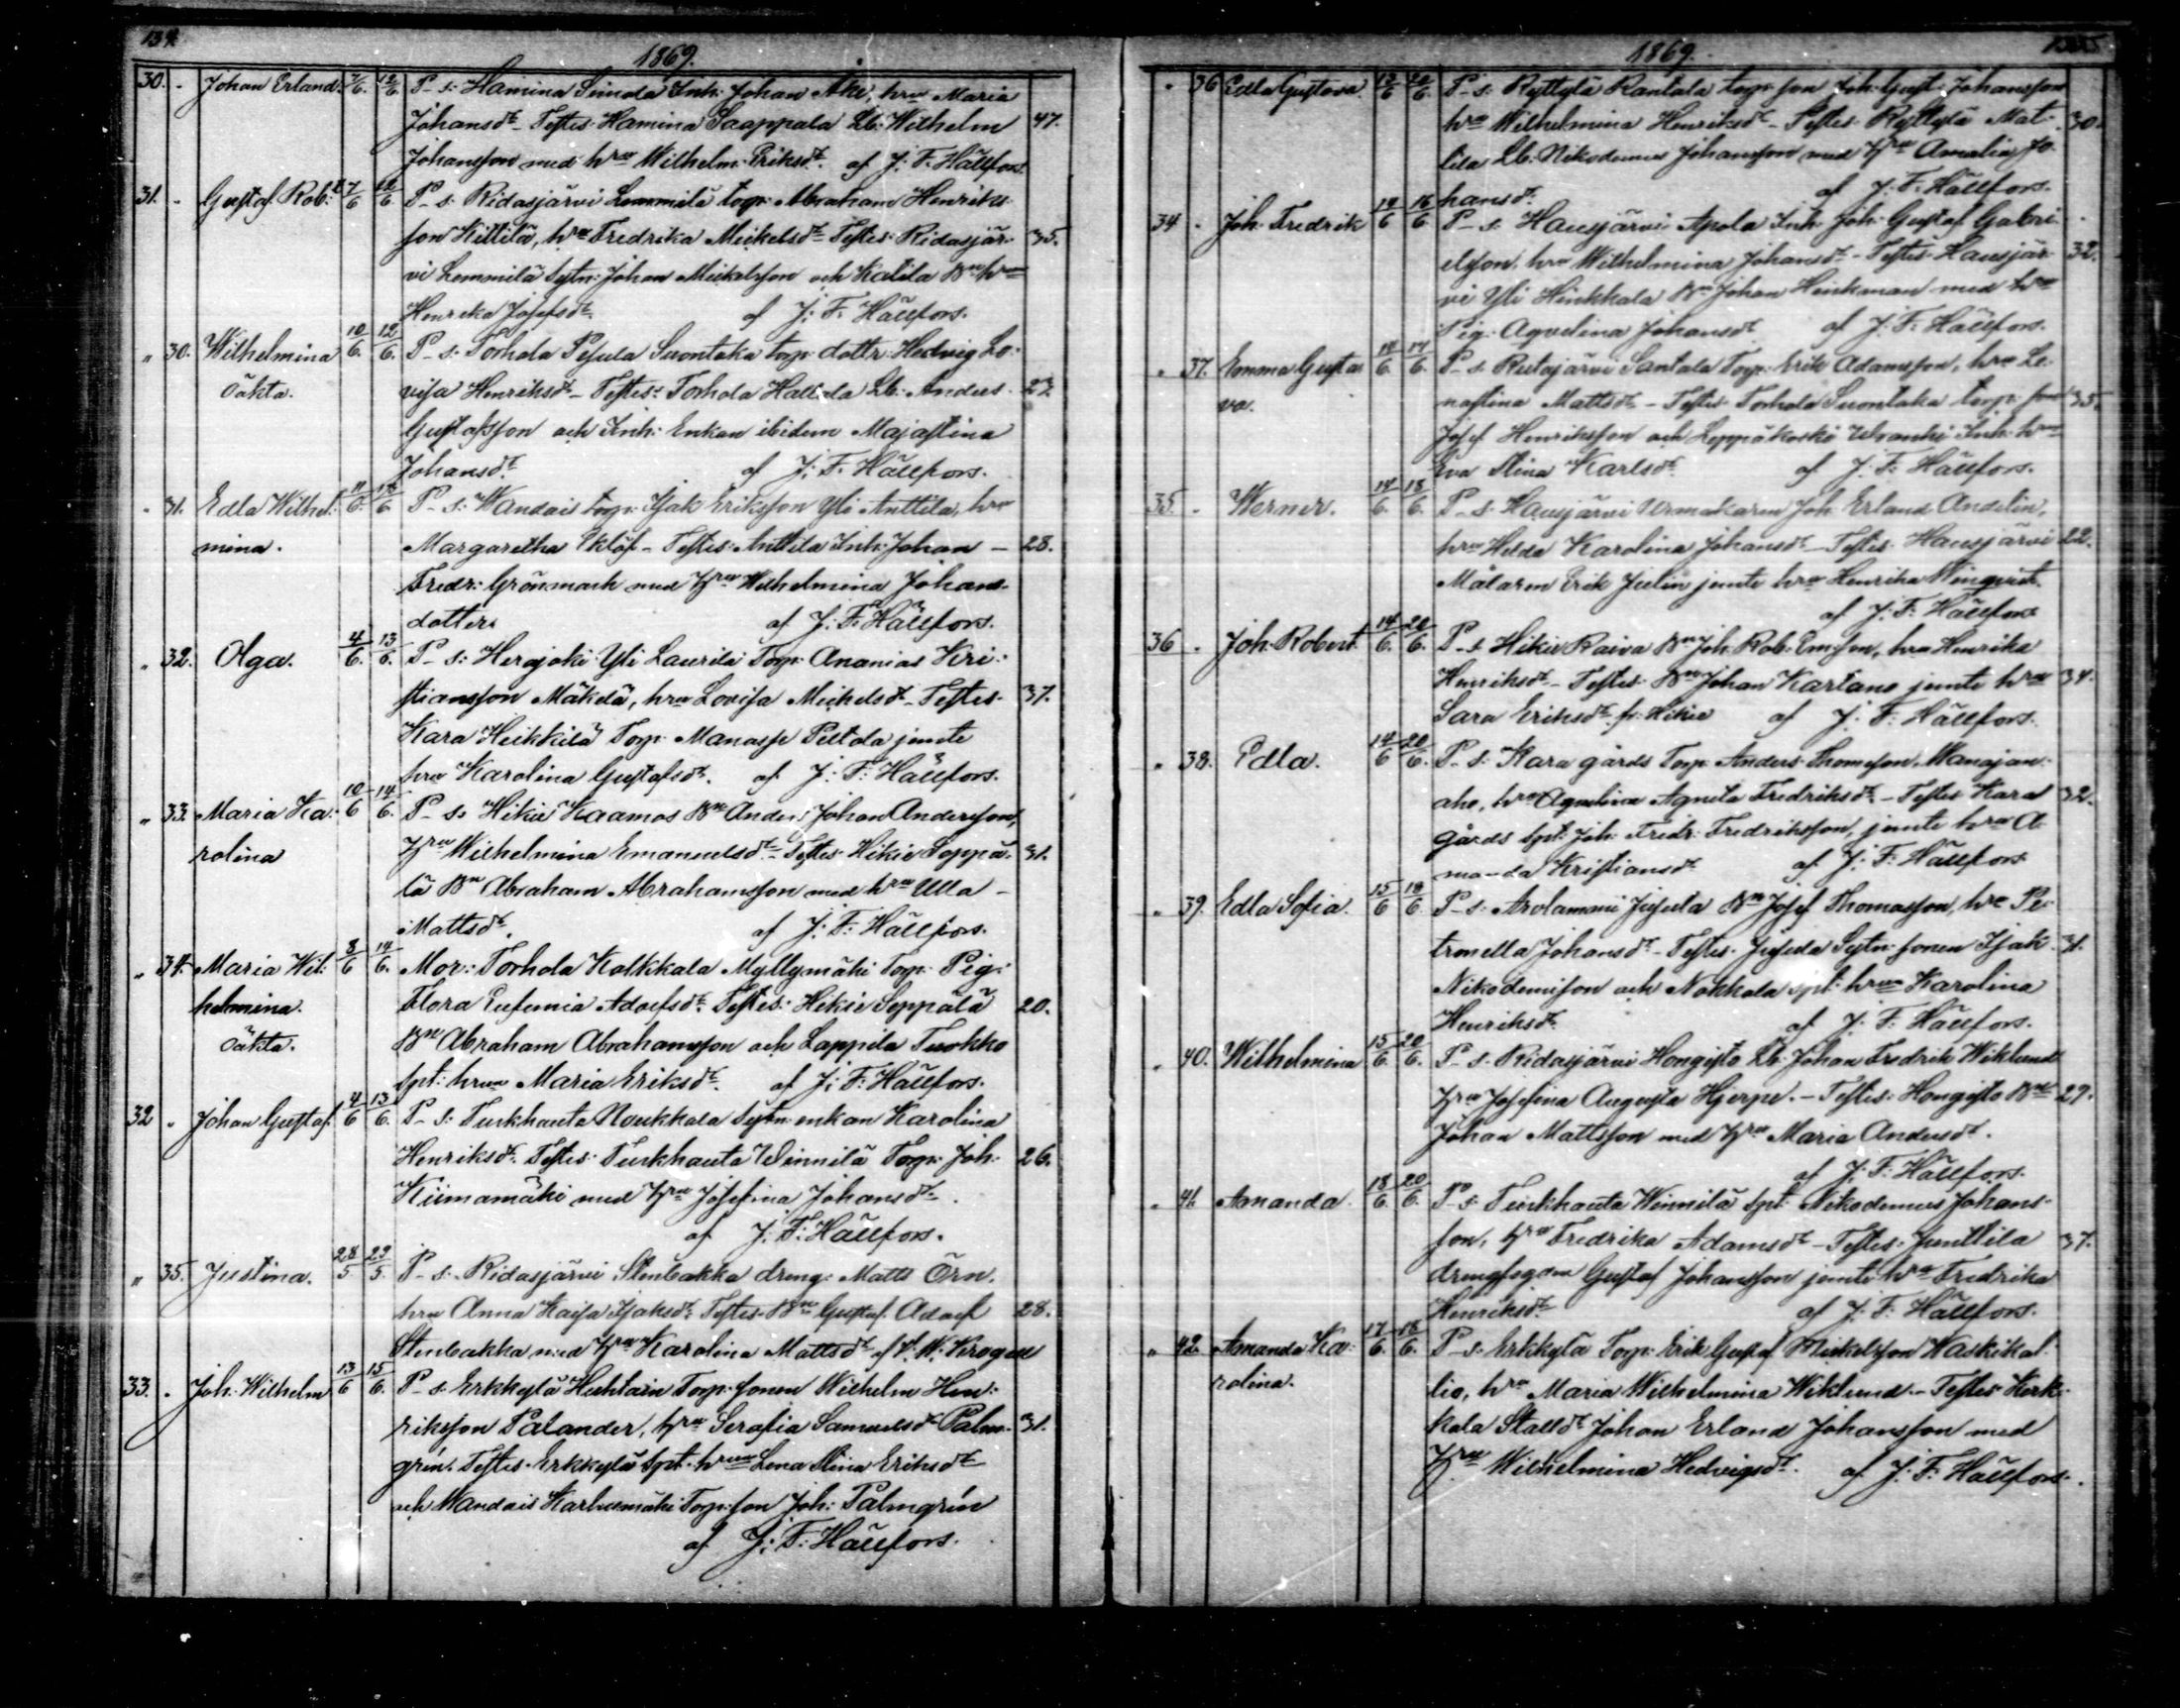 134.
1869.
30. - Johan Erland. 7/6. 12/6. P-s: Hamina Simola Inh: Johan Åke, hru Maria
Johansdr - Testes: Hamina Saappala Lb: Wilhelm 47.
Johansson med hru Wilhelm: Eriksdr. af J: F: Hällfors.
31. - Gustaf Rob:t 7/6 12/6. P-s: Ridasjärvi Lemmilä torp: Abraham Henriks
son Kittilä, hru Fredrika Mickelsdr - Testes: Ridasjär- 35.
vi Lemmilä Sytn: Johan Mickelsson och Kalila Bn hru
Henrika Josefsdr. af J: F: Hällfors.
" 30. Wilhelmina 10/6. 12/6. P-s: Torhola Pesula Suontaka torp: dottr: Hedvig Lo-
oäkta. visa Henriksdr - Testes: Torhola Hallala Lb: Anders 27.
Gustafsson och Inh: Enkan ibidem Majastina
Johansdr. af J: F: Hällfors.
" 31. Edla Wilhel- 11/6. P-s: Wandais torp: Isak Eriksson Yli Anttila, hru
mina. Margaretha Eklöf - Testes: Anttila Inh: Johan - 28.
Fredr: Grönmark med Hru Wilhelmina Johans-
dotter. af J: F: Hällfors.
" 32. Olga. 4/6. 13/6. P-s: Herajoki Yli Laurila Torp: Ananias Kri-
stiansson Mäkelä, hru Lovisa Mickelsdr - Testes: 37.
Kara Heikkilä Torp: Manasse Peltola jemte
hru Karolina Gustafsdr. af J: F: Hällfors.
" 33. Maria Ka- 10/6 14/6. P-s: Hikiä Kaamos Bn Anders Johan Andersson,
rolina Hru Wilhelmina Emanuelsdr - Testes: Hikiä Seppä- 31.
lä Bn Abraham Abrahamsson med hru Ulla -
Mattsdr. af J: F: Hällfors.
" 34. Maria Wil- 8/6 14/6. Mor: Torhola Kolkkala Myllymäki Torp: Pig:
helmina. Flora Eufemia Adolfsdr. Testes: Hikiä Seppälä 20.
oäkta. Bn Abraham Abrahamsson och Lappila Tuokko
Spt: hrun Maria Eriksdr. af J: F: Hällfors.
32 " Johan Gustaf. 4/6 13/6. P-s: Turkhauta Noukkala Sytn: enkan Karolina
Henriksdr. Testes: Turkhauta Winnilä Torp: Joh: 26.
Kiimamäki med Hru Josefina Johansdr.
af J: F: Hällfors.
" 35. Justina. 28/5 29/5. P-s: Ridasjärvi Stenbakka dreng: Matts Örn.
hru Anna Kaisa Isaksdr. Testes: Bn Gustaf Adolf 28.
Stenbakka med Hru Karolina Mattsdr af V. W: Kroged
33. - Joh: Wilhelm 13/6 15/6. P-s: Erkkylä Huhtain Torp: sonen Wilhelm Hen-
riksson Palander, Hru Serafia Samuelsdr Palm- 31.
grén. Testes: Erkkylä Spt: hrun Lena Stina Eriksdr
och Wandais Karhumäki Torp: son Joh: Palmgrén
af J: F: Hällfors.
1869.
" 36 Edla Gustava. 12/6 20/6. P-s: Ryttylä Rantala torp: son Joh: Gust: Johansson
hru Wilhelmina Henriksdr - Testes: Ryttylä Mat- 30.
tila Lb: Nikodemus Johansson med Hru Amalia Jo-
hansdr. af J: F: Hällfors.
34 . Joh: Fredrik 14/6 16/6 P-s: Hausjärvi Apola Inh: Joh: Gustaf Gabri-
elsson, hru Wilhelmina Johansdr - Testes: Hausjär- 32.
vi Yli Hinkkala Bn Johan Hinkman med hru
Pig: Aqvelina Johansdr af J: F: Hällfors.
" 37. Emma Gusta- 14/6. 17/6. P-s: Rutajärvi Santala Torp: Erik Adamsson, hru Le-
va. nastina Mattsdr - Testes: Torhola Suontaka torp: son 35.
Josef Henriksson och Leppäkoski Inh: hru
Eva Stina Karlsdr af J: F: Hällfors.
35. - Werner. 14/6. 18/6. P-s: Hausjärvi Urmakaren Joh: Erland Andelin,
hru Helda Karolina Johansdr - Testes: Hausjärvi 22.
Målaren Erik Julin jemte hru Henrika Winqvist.
af J: F: Hällfors
36 - Joh: Robert 14/6. 20/6. P-s: Hikiä Raiva Bn Joh: Rob: Emsson, hru Henrika
Henriksdr - Testes: Bn Johan Kartano jemte hru 34.
Sara Eriksdr fr: Hikiä af J: F: Hällfors.
" 38. Edla. 14/6 20/6. P-s: Kara gårds Torp: Anders Thomsson, Manajan-
aho, hru Agnela Fredriksdr. - Testes: Kara 32.
gårds Spt: Joh: Fredr: Fredriksson, jemte hru A-
manda Kristiansdr af J: F: Hällfors
" 39. Edla Sofia. 15/6 18/6. P-s: Arolammi Jusula Bn Josef Thomasson, hru Pe-
tronella Johansdr - Testes: Jusula Sytn: sonen Isak 31.
Nikodemisson och Nokkala spt: hrun Karolina
Henriksdr. af J: F: Hällfors.
" 40. Wilhelmina 15/6. 20/6. P-s: Ridasjärvi Hongisto Lb: Johan Fredrik Wiklund
Hru Josefina Augusta Hjerpe. - Testes: Hongisto Bn 29.
Johan Mattsson med Hru Maria Andersdr.
af J: F: Hällfors.
" 41. Amanda. 18/6. 20/6. P-s: Turkhauta Winnilä Spt: Nikodemus Johans-
son, Hru Fredrika Adamsdr - Testes: Junttila 37.
drengfogden Gustaf Johansson jemte hru Fredrika
Henriksdr. af J: F: Hällfors.
" 42. Amanda Ka- 17/6. 18/6. P-s: Erkkylä Torp: Erik Gustaf Mickelsson Waskikal-
rolina. lio, hru Maria Wilhelmina Wiklund - Testes: Kurk-
kala Stalldr Johan Erland Johansson med
Hru Wilhelmina Hedvigsdr. af J: F: Hällfors.